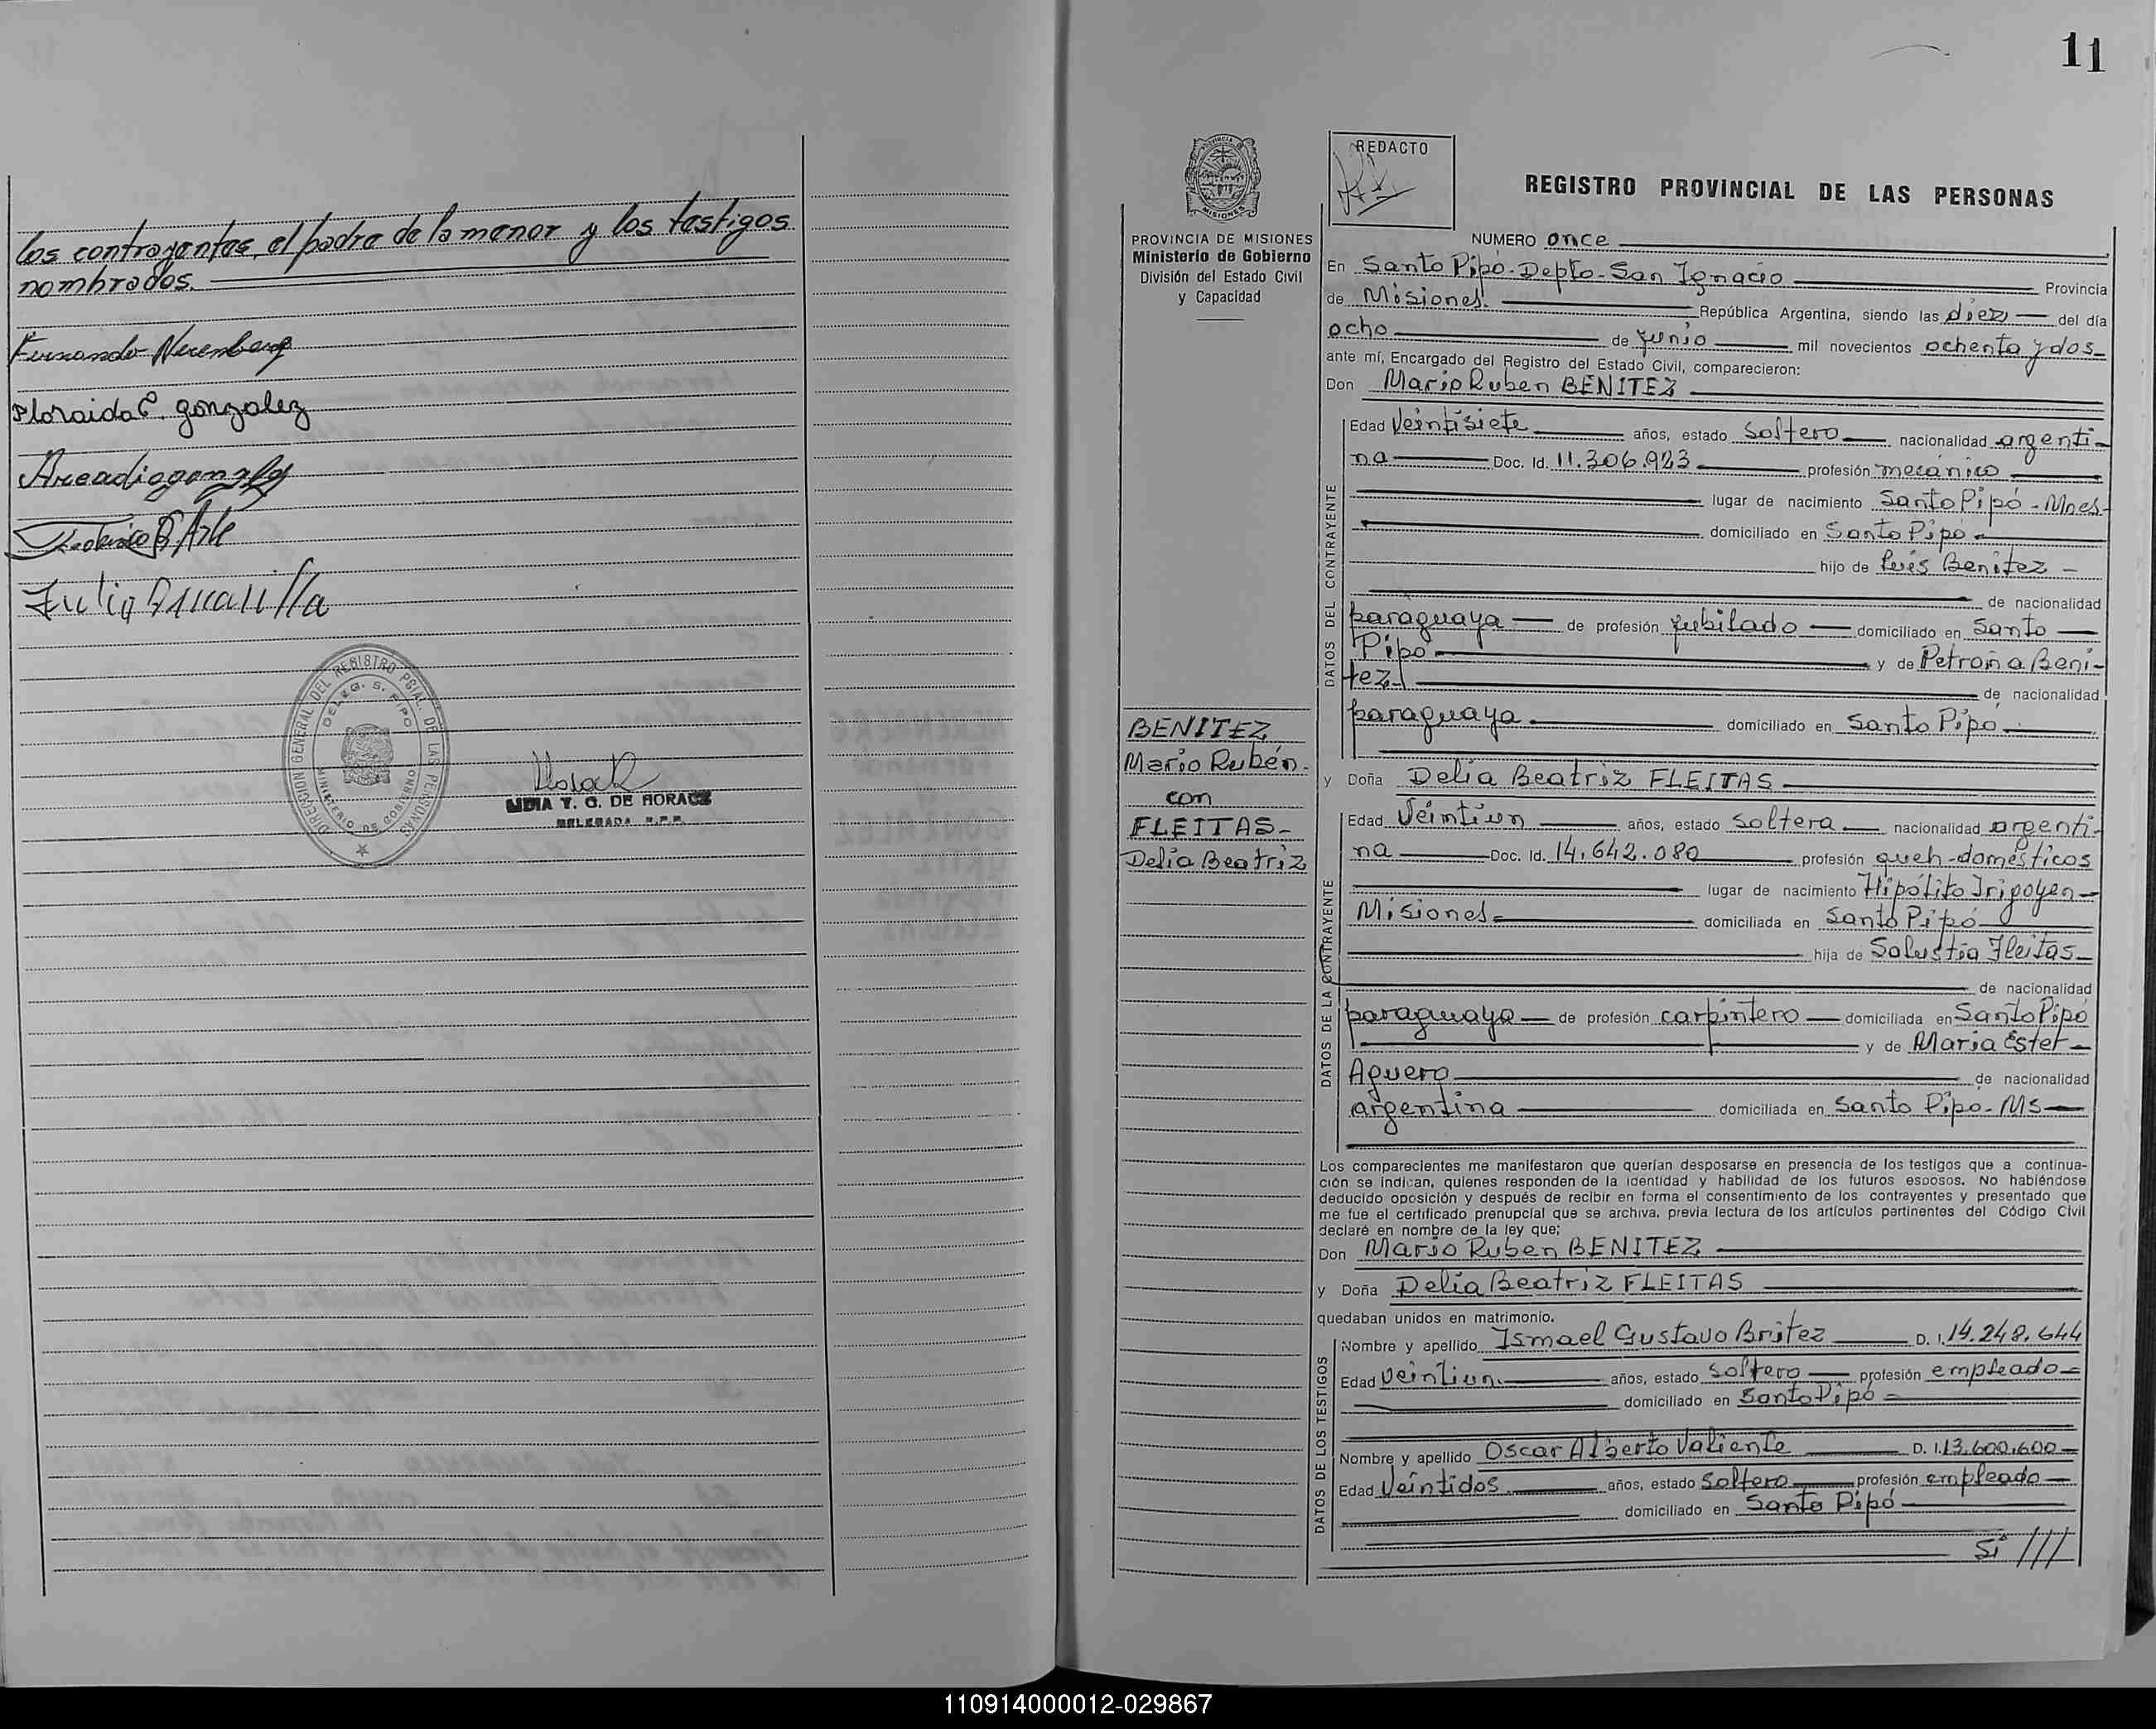 los contrayentes, el padre de la menor y los testigos
nombrados.
Fernando Nerenberg
gonzalez
Arcadio gonzalez
DIRECCION GENERAL DEL REGISTRO PCIAL. DE LAS PERSONAS
DELEG. S. PIPO
MINISTERIO DE GOBIERNO
LIDIA T. G. DE HORACZ
DELEGADA R.P.P.
11
PROVINCIA
MISIONES
PROVINCIA DE MISIONES
Ministerio de Gobierno
División del Estado Civil
y Capacidad
REDACTO
REGISTRO PROVINCIAL DE LAS PERSONAS
NUMERO once
En Santo Pipó - Depto - San Ignacio Provincia
de Misiones. República Argentina, siendo las diez del día
ocho de junio mil novecientos ochenta y dos
ante mí, Encargado del Registro del Estado Civil, comparecieron:
Don Mario Ruben BENITEZ
DATOS DEL CONTRAYENTE
Edad Veintisiete años, estado Soltero nacionalidad argenti-
na Doc. Id. 11.306.923 profesión mecánico
lugar de nacimiento Santo Pipó - Mnes-
domiciliado en Santo Pipó
hijo de Benitez
de nacionalidad
paraguaya de profesión jubilado domiciliado en Santo
Pipó y de Petrona Beni-
tez de nacionalidad
paraguaya domiciliado en Santo Pipó
BENITEZ
Mario Rubén
con
FLEITAS
Delia Beatriz
y Doña Delia Beatriz FLEITAS
DATOS DE LA CONTRAYENTE
Edad Veintiun años, estado Soltera nacionalidad argenti-
na Doc. Id. 14.642.080 profesión queh-domésticos
lugar de nacimiento Hipólito Irigoyen
Misiones domiciliada en Santo Pipó
hija de Fleitas
de nacionalidad
paraguaya de profesión carpintero domiciliada en Santo Pipó
y de Maria Ester
Aguero de nacionalidad
argentina domiciliada en Santo Pipó - MS
Los comparecientes me manifestaron que querían desposarse en presencia de los testigos que a continua-
ción se indican, quienes responden de la identidad y habilidad de los futuros esposos. No habiéndose
deducido oposición y después de recibir en forma el consentimiento de los contrayentes y presentado que
me fue el certificado prenupcial que se archiva, previa lectura de los artículos pertinentes del Código Civil
declaré en nombre de la ley que;
Don Mario Ruben BENITEZ
y Doña Delia Beatriz FLEITAS
quedaban unidos en matrimonio.
DATOS DE LOS TESTIGOS
Nombre y apellido Ismael Gustavo Britez D. I. 14.248.644
Edad veintiun años, estado Soltero profesión empleado
domiciliado en Santo Pipó
Nombre y apellido Oscar Alberto Valiente D. I. 13.600.600
Edad Veintidos años, estado Soltero profesión empleado
domiciliado en Santo Pipó
Si ///
110914000012-029867